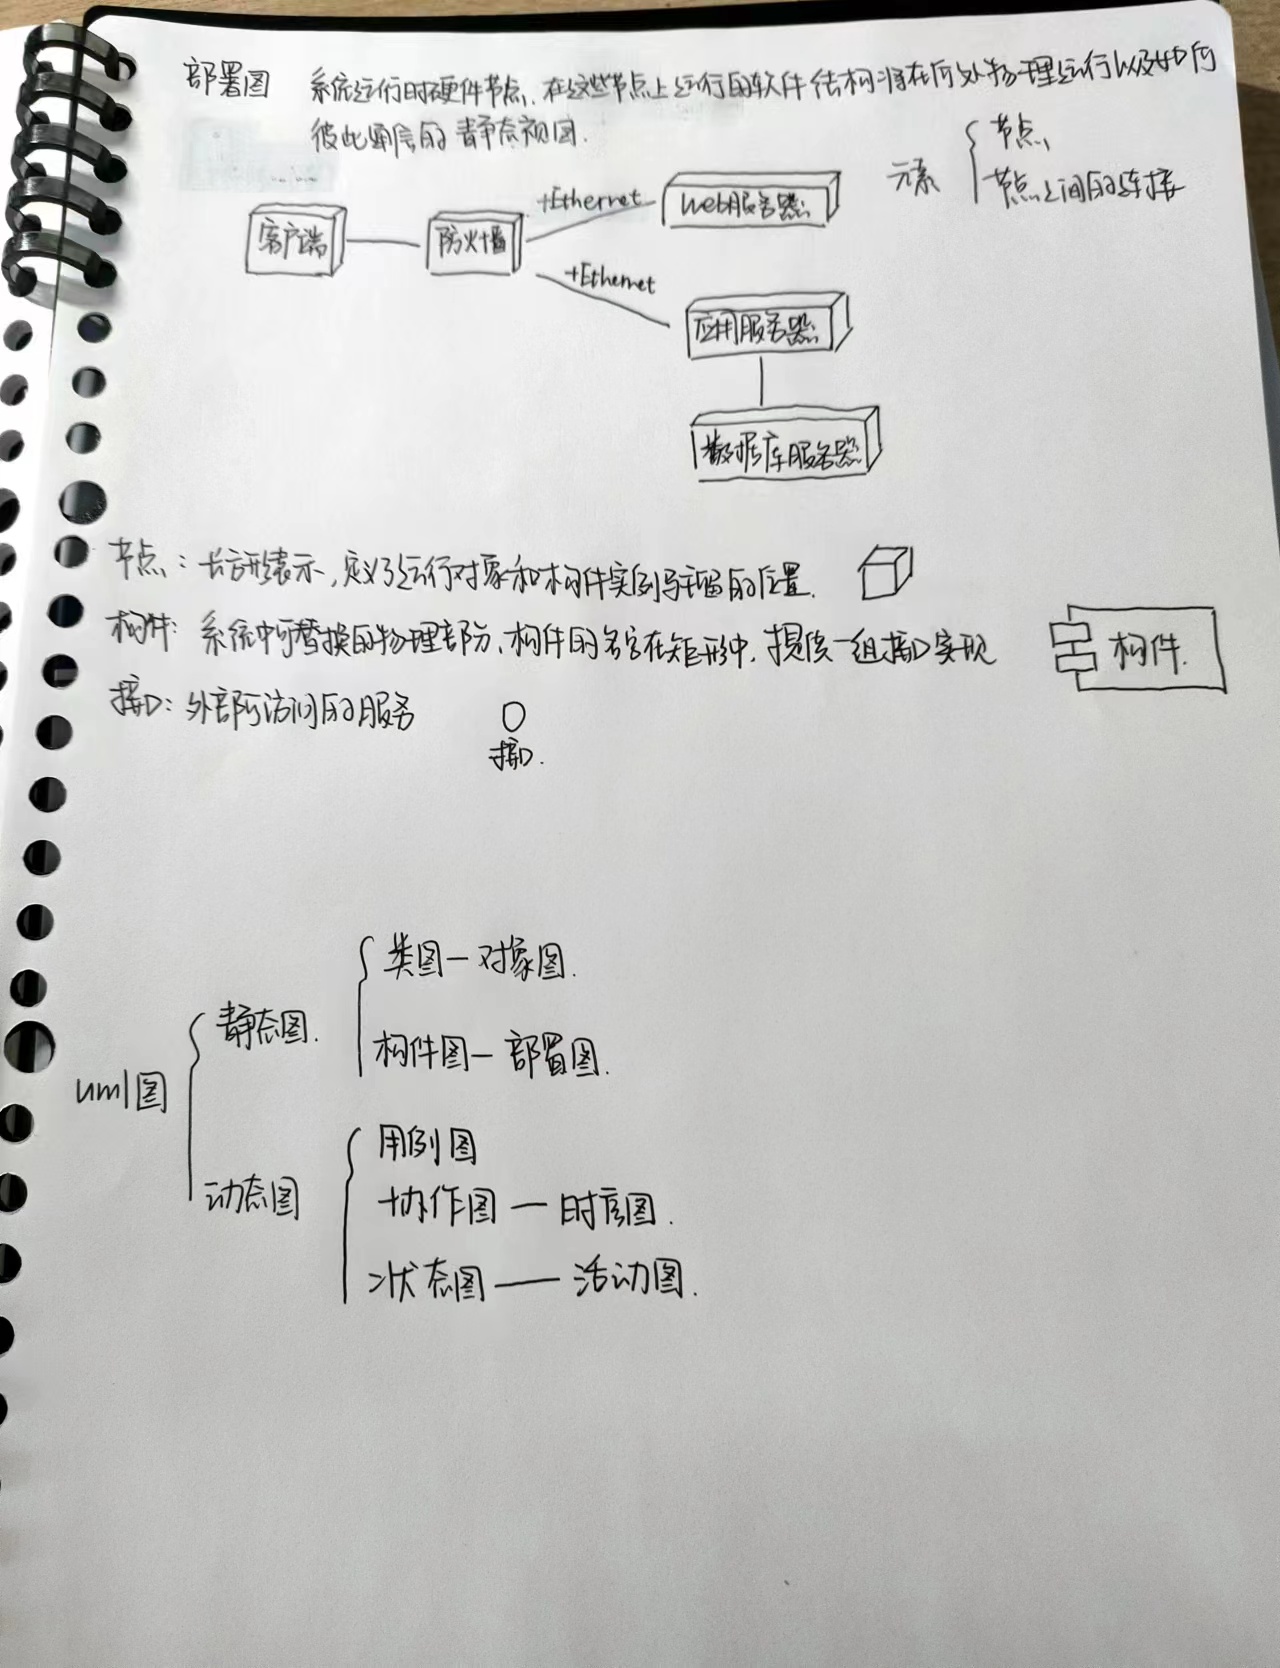 部署图 系统运行时硬件节点、在这些节点上运行的软件结构将在何处物理运行以及如何
彼此通信的静态视图.
元素 节点
节点之间的连接
客户端 防火墙 +Ethernet Web服务器
+Ethernet
应用服务器
数据库服务器
节点: 长方形表示,定义了运行对象和构件实例驻留的位置.
构件: 系统中可替换的物理部分、构件的名字在矩形中,提供一组接口实现
构件.
接口: 外部可访问的服务
接口.
uml图
静态图.
类图—对象图.
构件图—部署图.
动态图
用例图
协作图—时序图.
状态图——活动图.